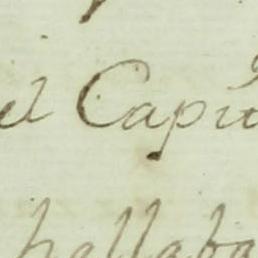 el Capit
hallaba